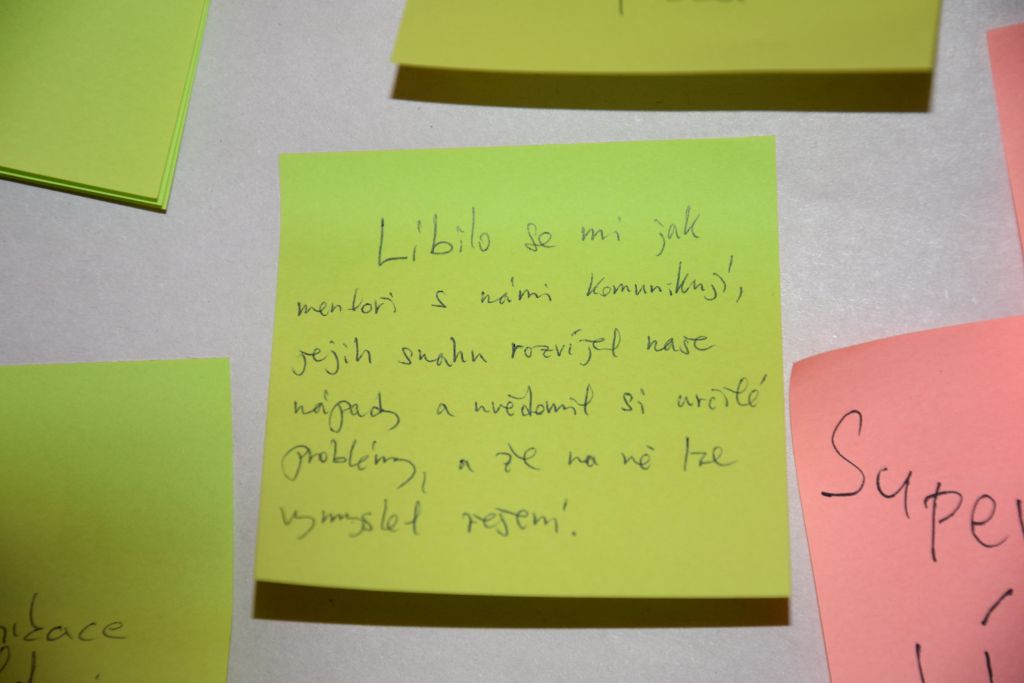 Líbilo se mi jak
mentoři s námi komunikují,
jejih snahu rozvíjet naše
nápady a uvědomit si určité
problémy, a že na ně lze
vymyslet řešení.
Super